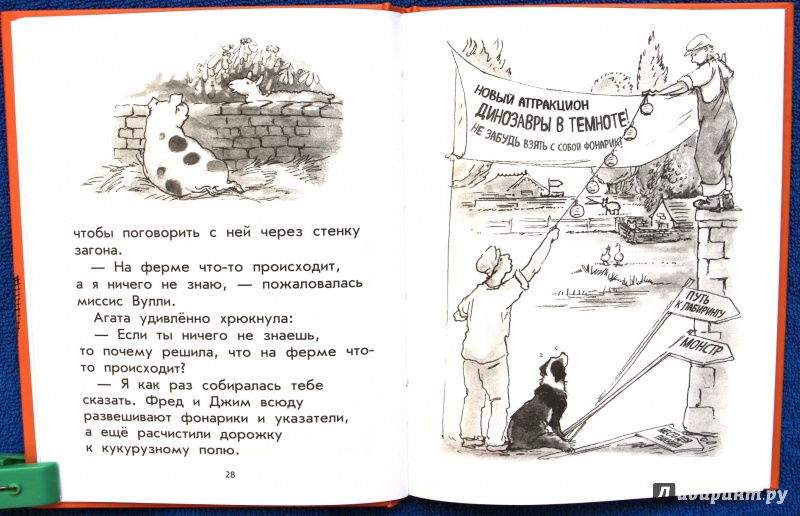 чтобы поговорить с ней через стенку
загона.
— На ферме что-то происходит,
а я ничего не знаю, — пожаловалась
миссис Вулли.
Агата удивлённо хрюкнула:
— Если ты ничего не знаешь,
то почему решила, что на ферме что-
то происходит?
— Я как раз собиралась тебе
сказать. Фред и Джим всюду
развешивают фонарики и указатели,
а ещё расчистили дорожку
к кукурузному полю.
28
НОВЫЙ АТТРАКЦИОН
ДИНОЗАВРЫ В ТЕМНОТЕ!
НЕ ЗАБУДЬ ВЗЯТЬ С СОБОЙ ФОНАРИК!
ПУТЬ
К ЛАБИРИНТУ
МОНСТР
Лабиринт.ру